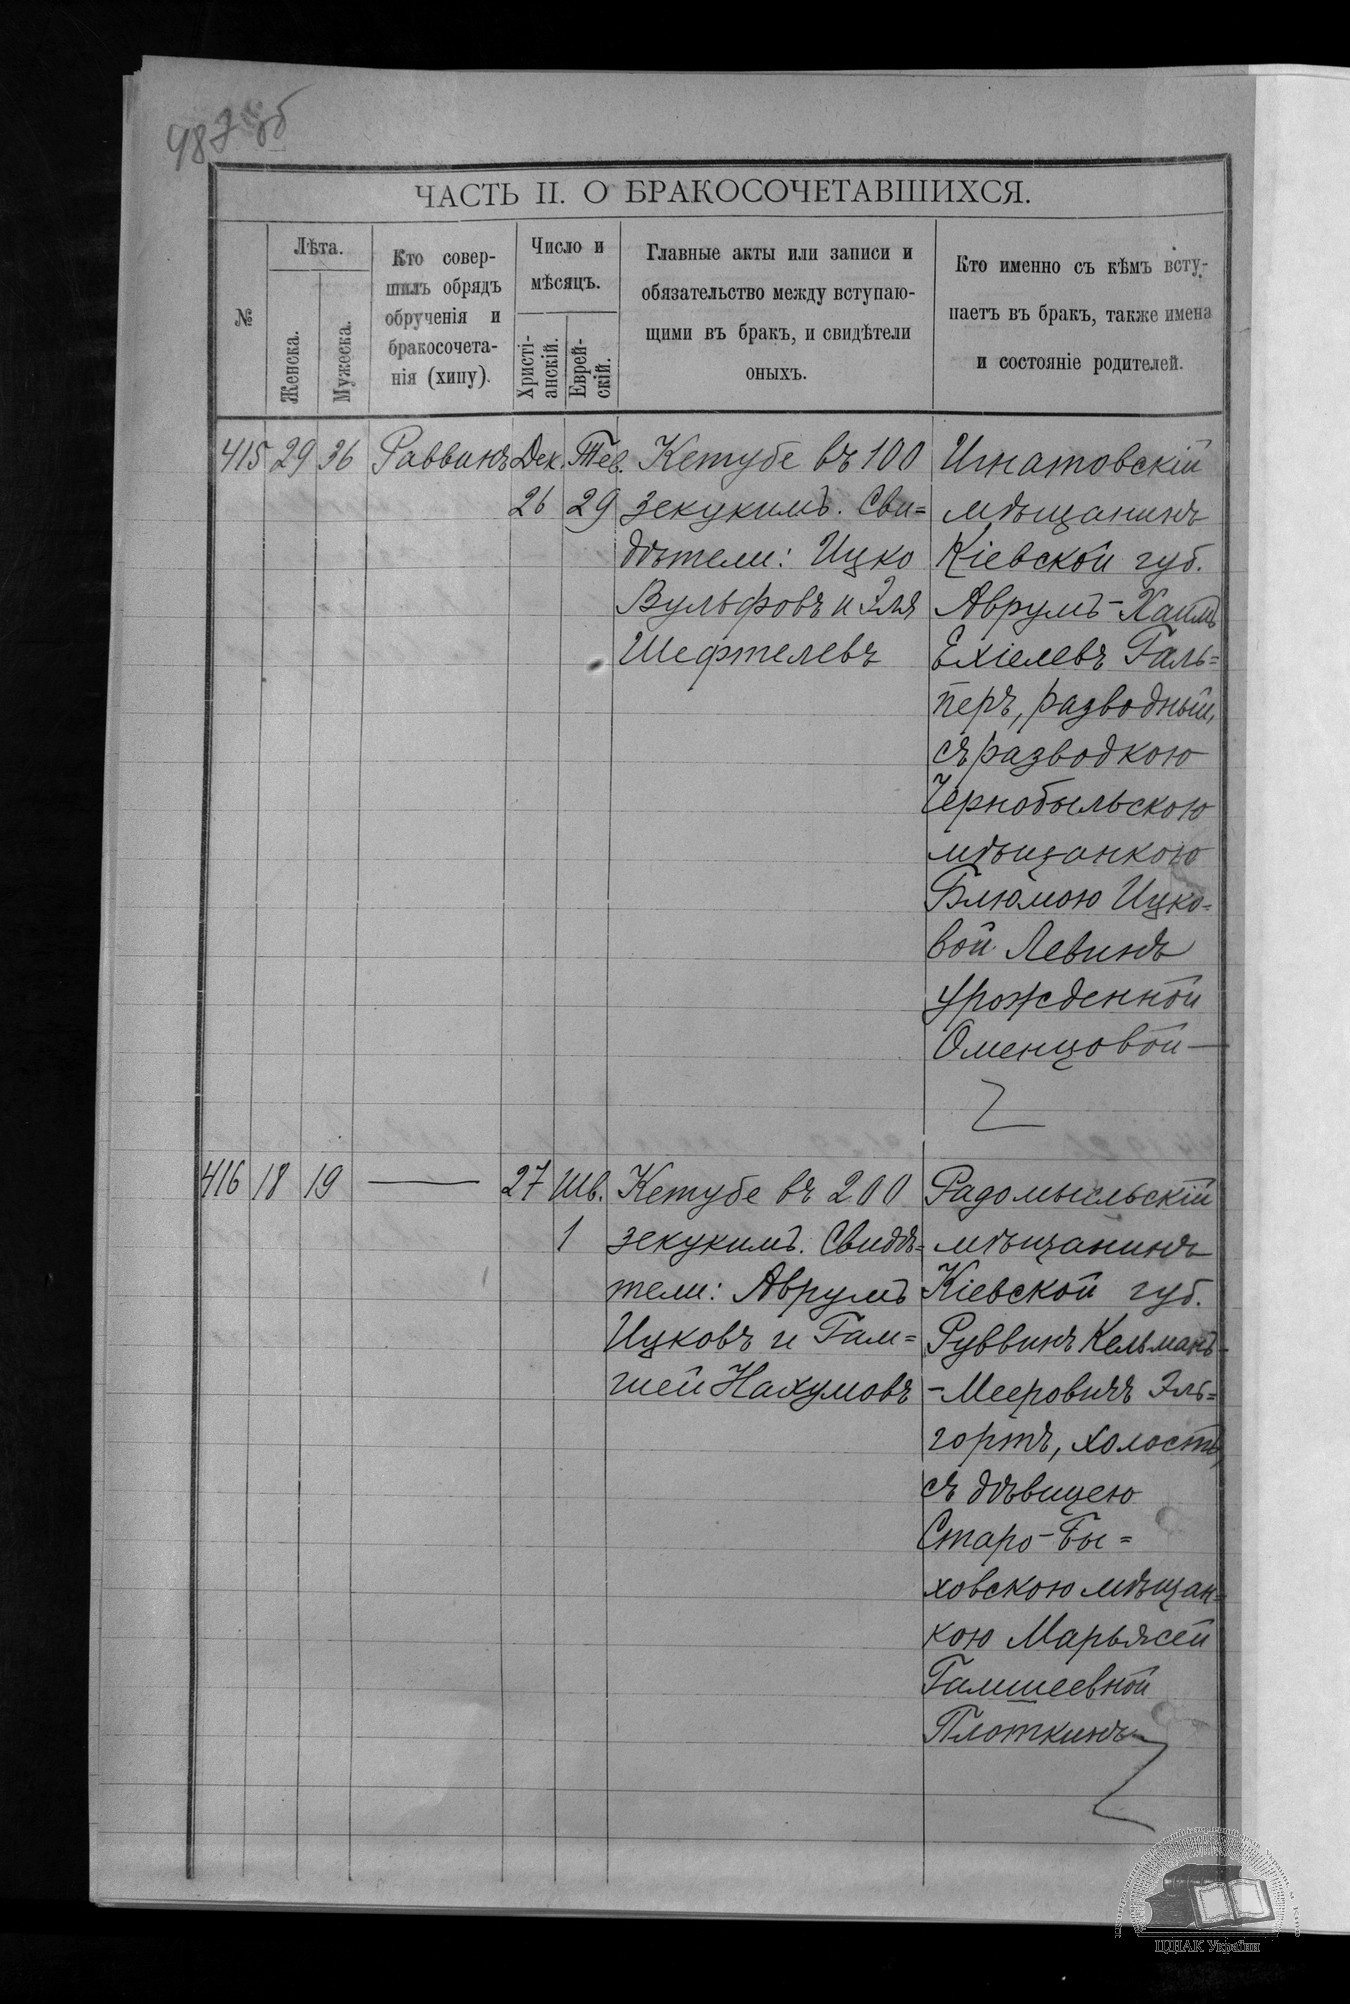 487 об
ЧАСТЬ II. О БРАКОСОЧЕТАВШИХСЯ.
№
Лѣта.
Женска.
Мужеска.
Кто совер-
шилъ обрядъ
обрученія и
бракосочета-
нія (хипу).
Число и
мѣсяцъ.
Христі-
анскій.
Еврей-
скій.
Главные акты или записи и
обязательство между вступаю-
щими въ бракъ, и свидѣтели
оныхъ.
Кто именно съ кѣмъ всту-
паетъ въ бракъ, также имена
и состояніе родителей.
415 29 36 Раввинъ Дек. 26 Тев. 29
Кетубе въ 100
зекукимъ. Сви=
дѣтели: Ицко
Вульфовъ и Эля
Шефтелевъ
Игнатовскій
мѣщанинъ
Кіевской губ.
Аврумъ-Хаимъ
Ехіелевъ Галь=
перъ, разводный,
съ разводкою
Чернобыльскою
мѣщанкою
Блюмою Ицко=
вой Левинъ
урожденной
Оменцовой —
416 18 19 — 27 Шв. 1
Кетубе въ 200
зекукимъ. Свидѣ=
тели: Аврумъ
Ицковъ и Гам=
шей Нахумовъ
Радомысльскій
мѣщанинъ
Кіевской губ.
Руввинъ Кельманъ-
-Мееровичъ Эль=
гортъ, холостъ,
съ дѣвицею
Старо-Бы=
ховскою мѣщан=
кою Марьясей
Гамшеевной
Плоткинъ
ЦДІАК України